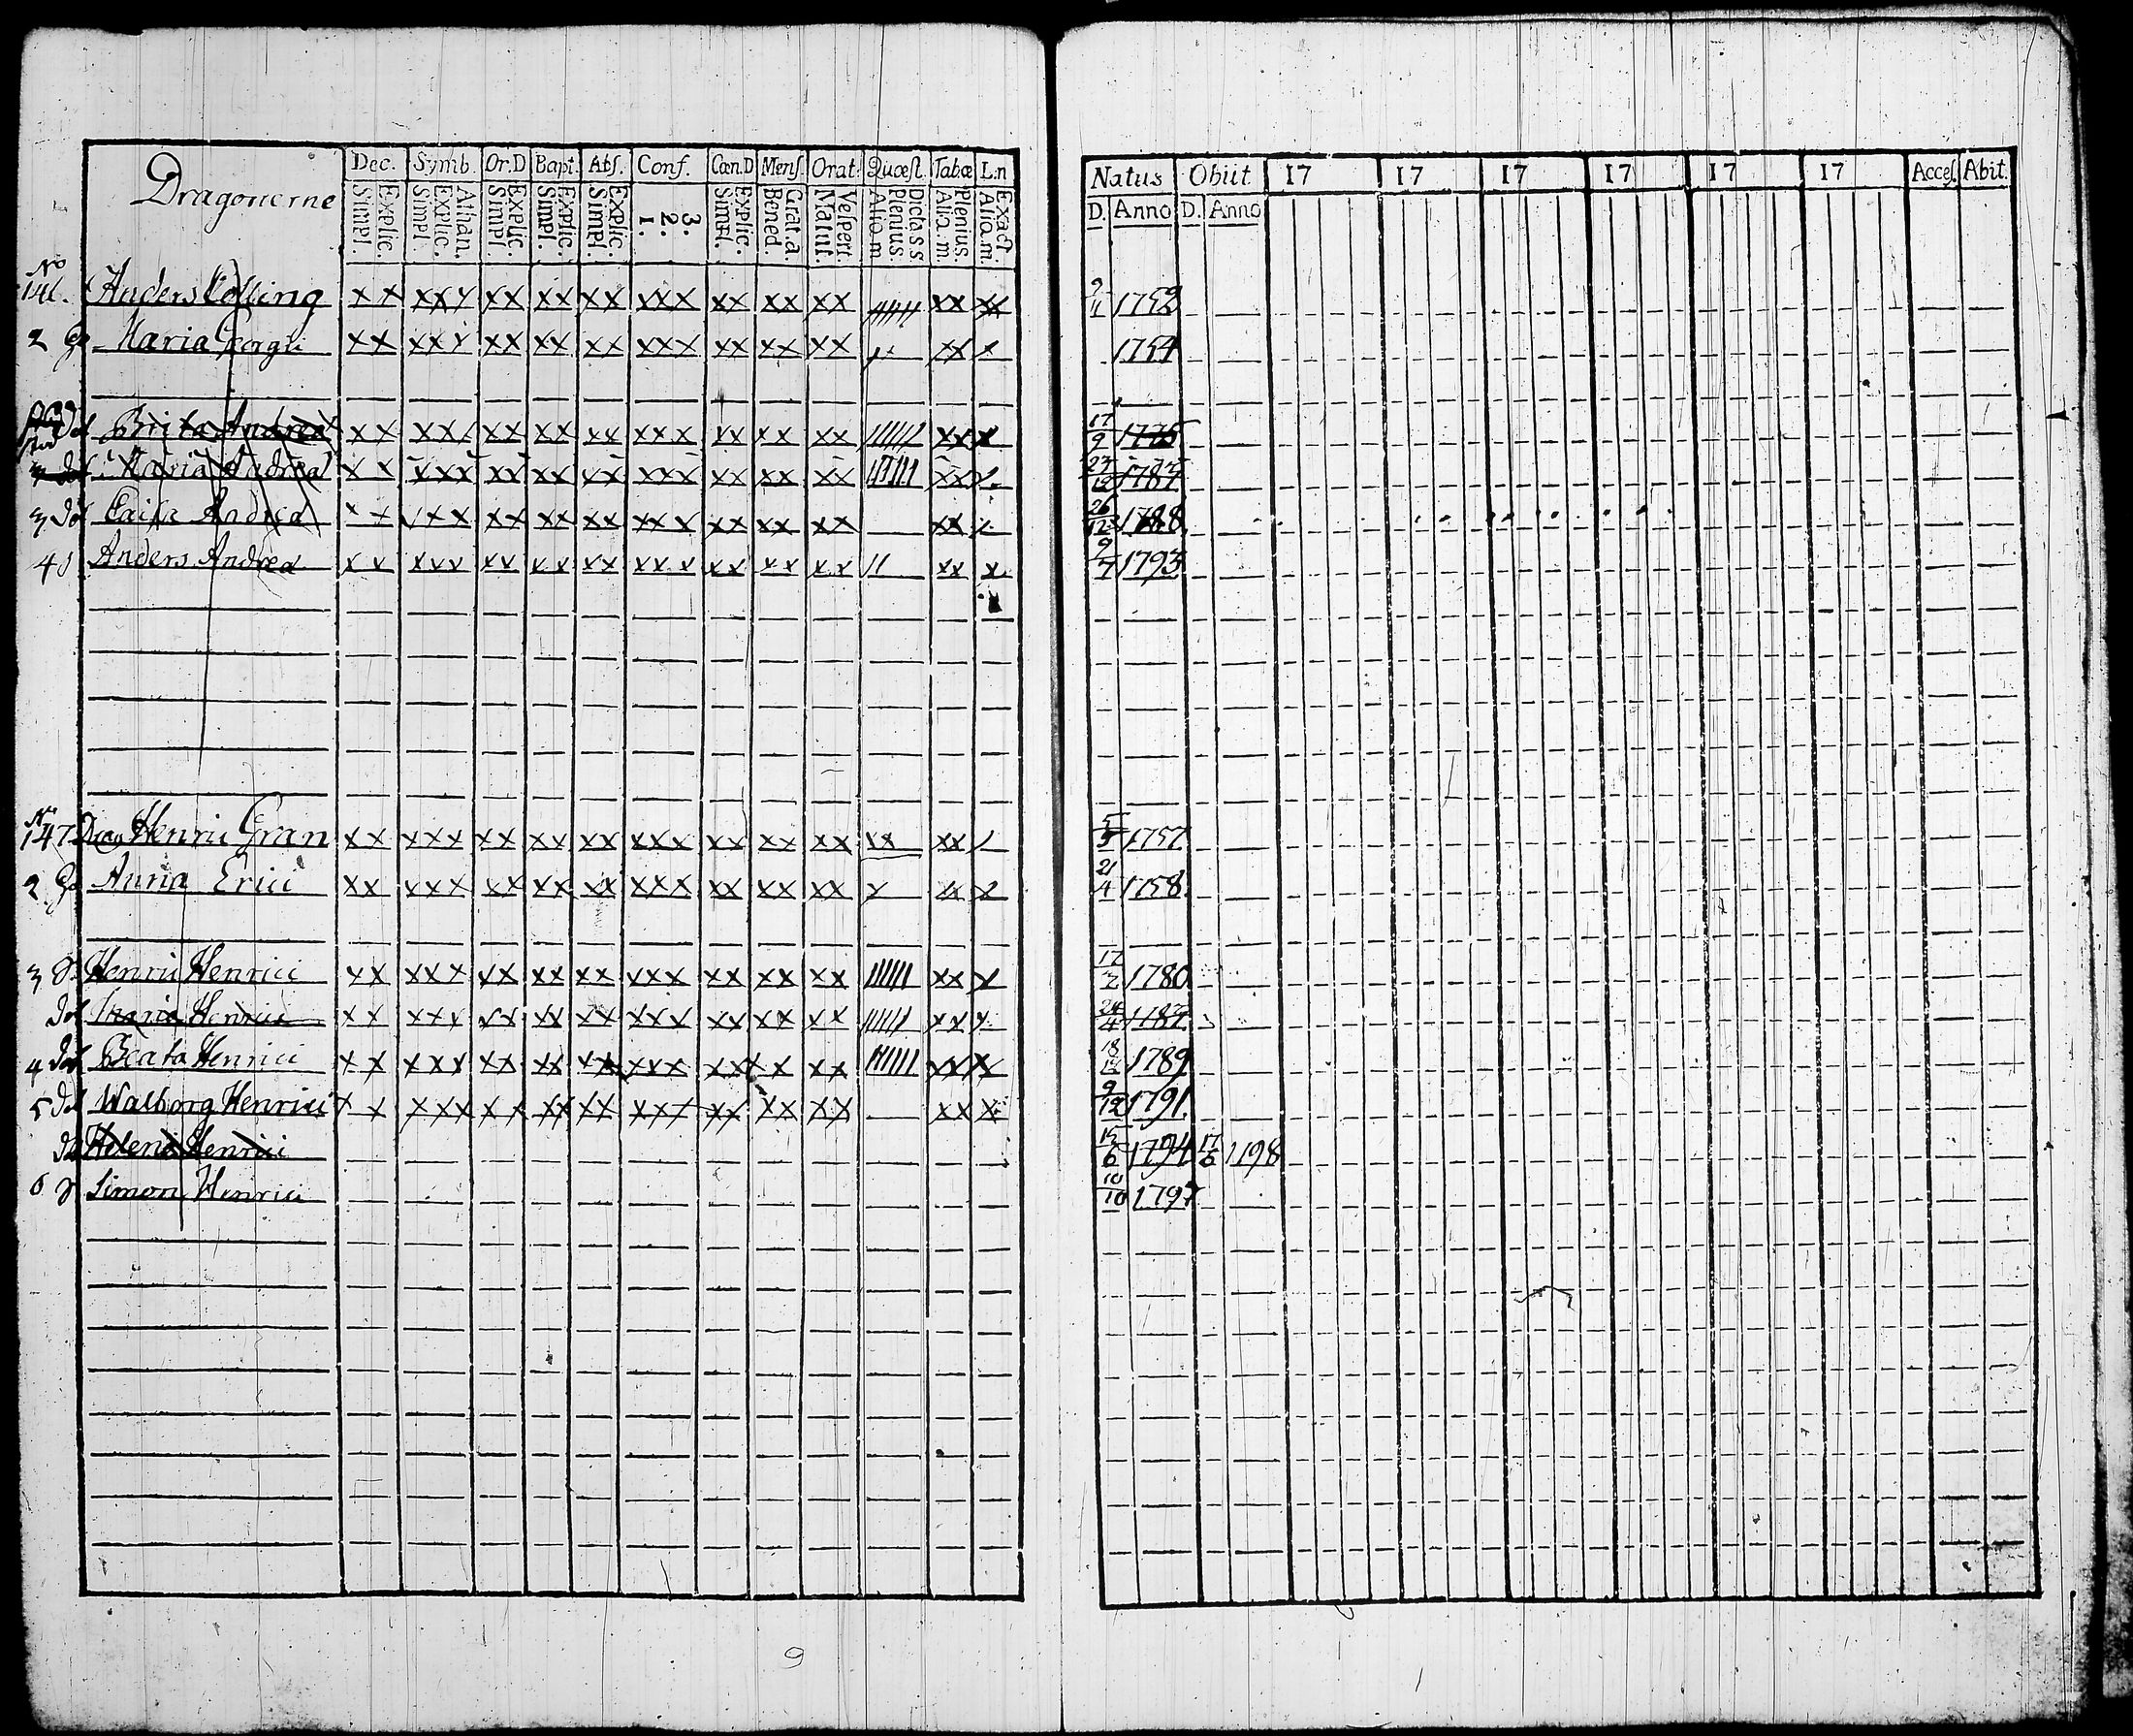 Dragonerne Dec. Symb. Or.D Bapt. Abſ. Conf. Cœn.D Menſ. Orat. Quœſt. Tabœ L.n
Explic. Simpl. Athan. Explic. Simpl. Explic. Simpl. Explic. Simpl. Explic. Simpl. 3. 2. 1. Explic. Simpl. Grat.a. Bened. Veſpert. Matut. Dicta s s Plenius Alio.m Plenius. Alia.m. Exact. Alia.m.
No 146. Anders xx xxx xx xx xx xxx xx xx xx ////// xx xx
2 Maria xx xxx xx xx xx xxx xx xx xx xx x
Brita Andreæ xx xxx xx xx xx xxx xx xx xx ////// xxx x
Maria Andreæ xx xxx xx xx xx xxx xx xx xx ////// xx
3 Caisa Andreæ xx xxx xx xx xx xxx xx xx xx xx
4 S Anders Andreæ xx xxx xx xx xx xxx xx xx xx // xx x
No 147 Drag Henric Gran xx xxx xx xx xx xxx xx xx xx xx xx /
2 Anna Erici xx xxx xx xx xx xxx xx xx xx x xx x
3 S Henric Henrici xx xxx xx xx xx xxx xx xx xx ////// xx x
Maria Henrici xx xxx xx xx xx xxx xx xx xx ////// xx x
4 Beata Henrici xx xxx xx xx xx xxx xx xx xx ////// xx x
5 Walborg Henrici xx xxx xx xx xx xxx xx xx xx xx x
Helena Henrici
6 S Simon Henrici
9
Natus Obiit 17 17 17 17 17 17 Acceſ. Abit.
D. Anno D. Anno
1754
17/9 1775
1787
26/12 1788
9/7 1793
1757
21/4 1758
1780
24/4 1787
1789
9/12 1791
15/6 1794 1798
10/10 1797